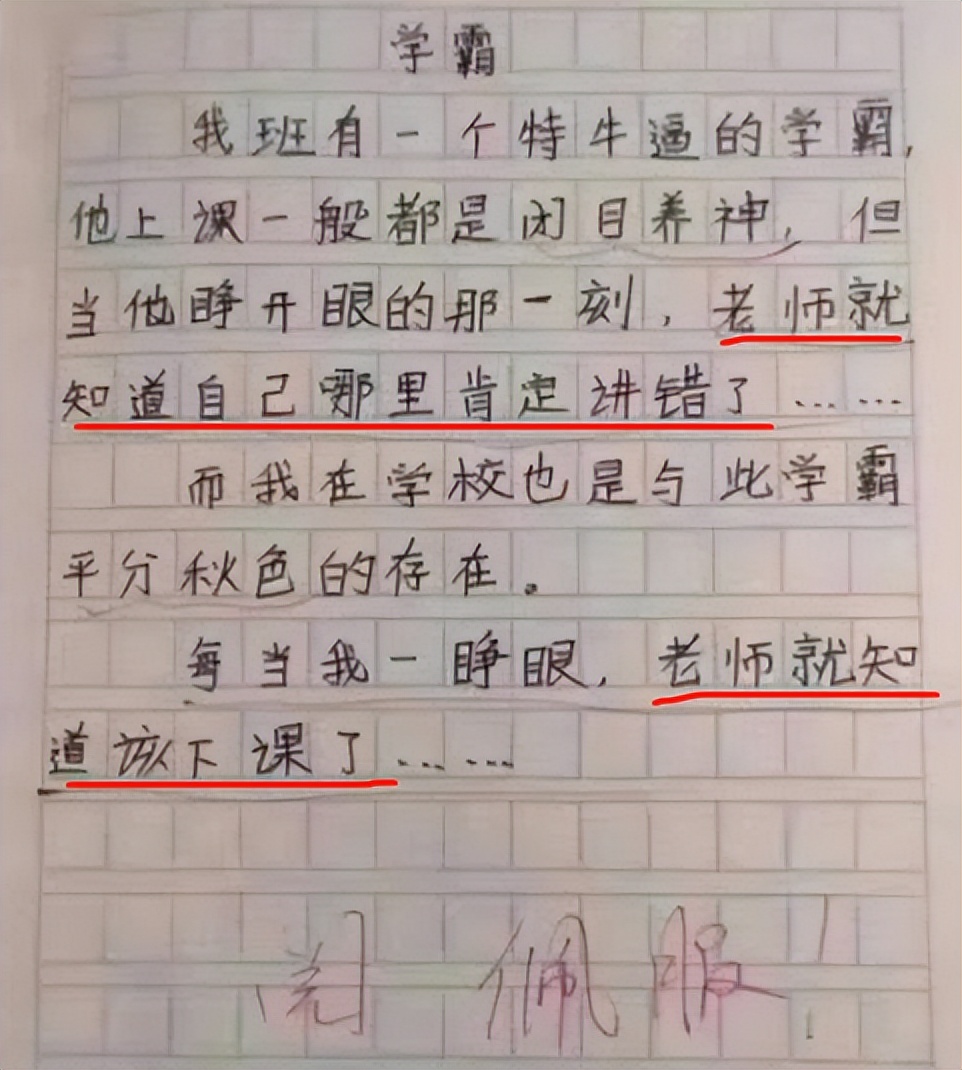 学霸
我班有一个特牛逼的学霸,
他上课一般都是闭目养神，但
当他睁开眼的那一刻，老师就
知道自己哪里肯定讲错了……
而我在学校也是与此学霸
平分秋色的存在。
每当我一睁眼，老师就知
道该下课了……
阅 佩服！